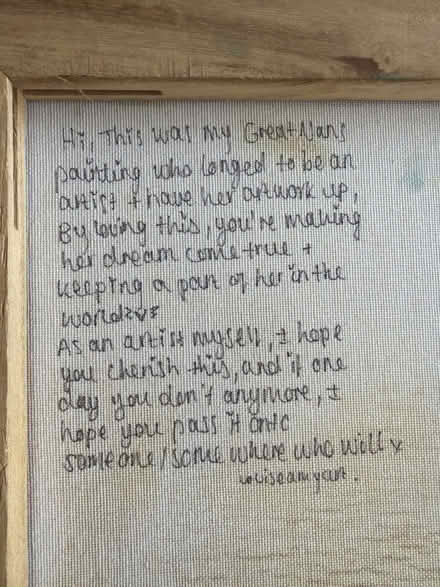 Hi, This was my Great Nans
painting who longed to be an
artist + have her artwork up,
By loving this, you're making
her dream come true +
keeping a part of her in the
world
As an artist myself, I hope
you cherish this, and if one
day you don't anymore, I
hope you pass it onto
someone/some where who will x
louiseamyart.